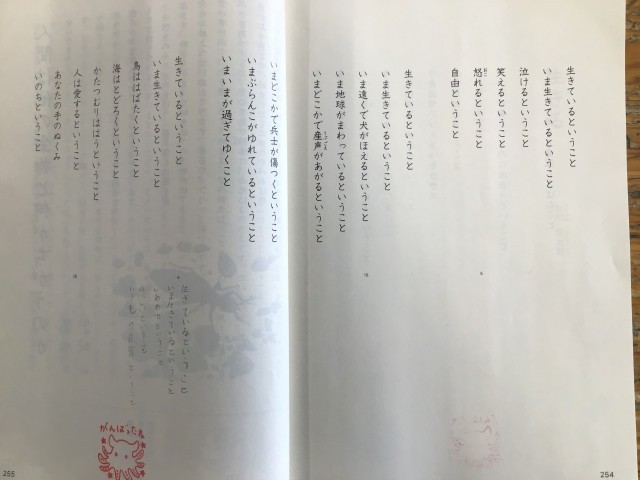 生きているということ
いま生きているということ
泣けるということ
笑えるということ
怒れるということ
自由ということ
生きているということ
いま生きているということ
いま遠くで犬がほえるということ
いま地球がまわっているということ
いまどこかで産声があがるということ
254
いまどこかで兵士が傷つくということ
いまぶらんこがゆれているということ
いまいまが過ぎてゆくこと
生きているということ
いま生きているということ
鳥ははばたくということ
海はとどろくということ
かたつむりははうということ
人は愛するということ
あなたの手のぬくみ
いのちということ
生きているということ
いま生きているということ
いうこと
がんばったね
255